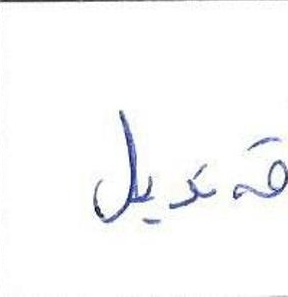 قنديل